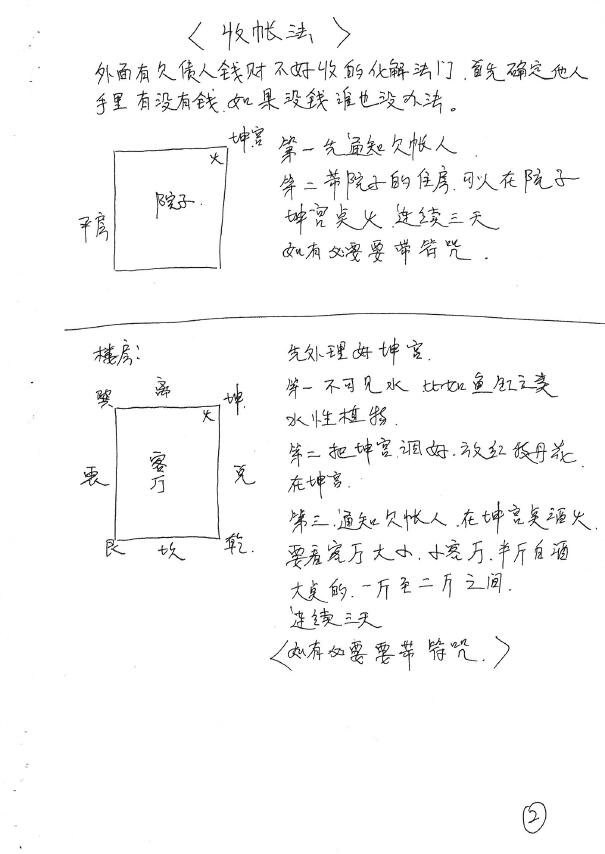 〈收帐法〉
外面有欠债人钱财不好收的化解法门.首先确定他人
手里有没有钱.如果没钱谁也没办法。
坤宫
火
院子.
平房
第一先通知欠帐人.
第二带院子的住房.可以在院子
坤宫点火.连续三天
如有必要要带符咒.
楼房:
巽 离 坤.
火
震 客厅 兑
艮 坎 乾.
先处理好坤宫.
第一不可见水 比如鱼缸之类
水性植物.
第二把坤宫调好.放红牡丹花
在坤宫.
第三.通知欠帐人.在坤宫点酒火.
要看客厅大小.小客厅.半斤白酒
大点的.一斤至二斤之间.
连续三天
〈如有必要要带符咒.〉
②